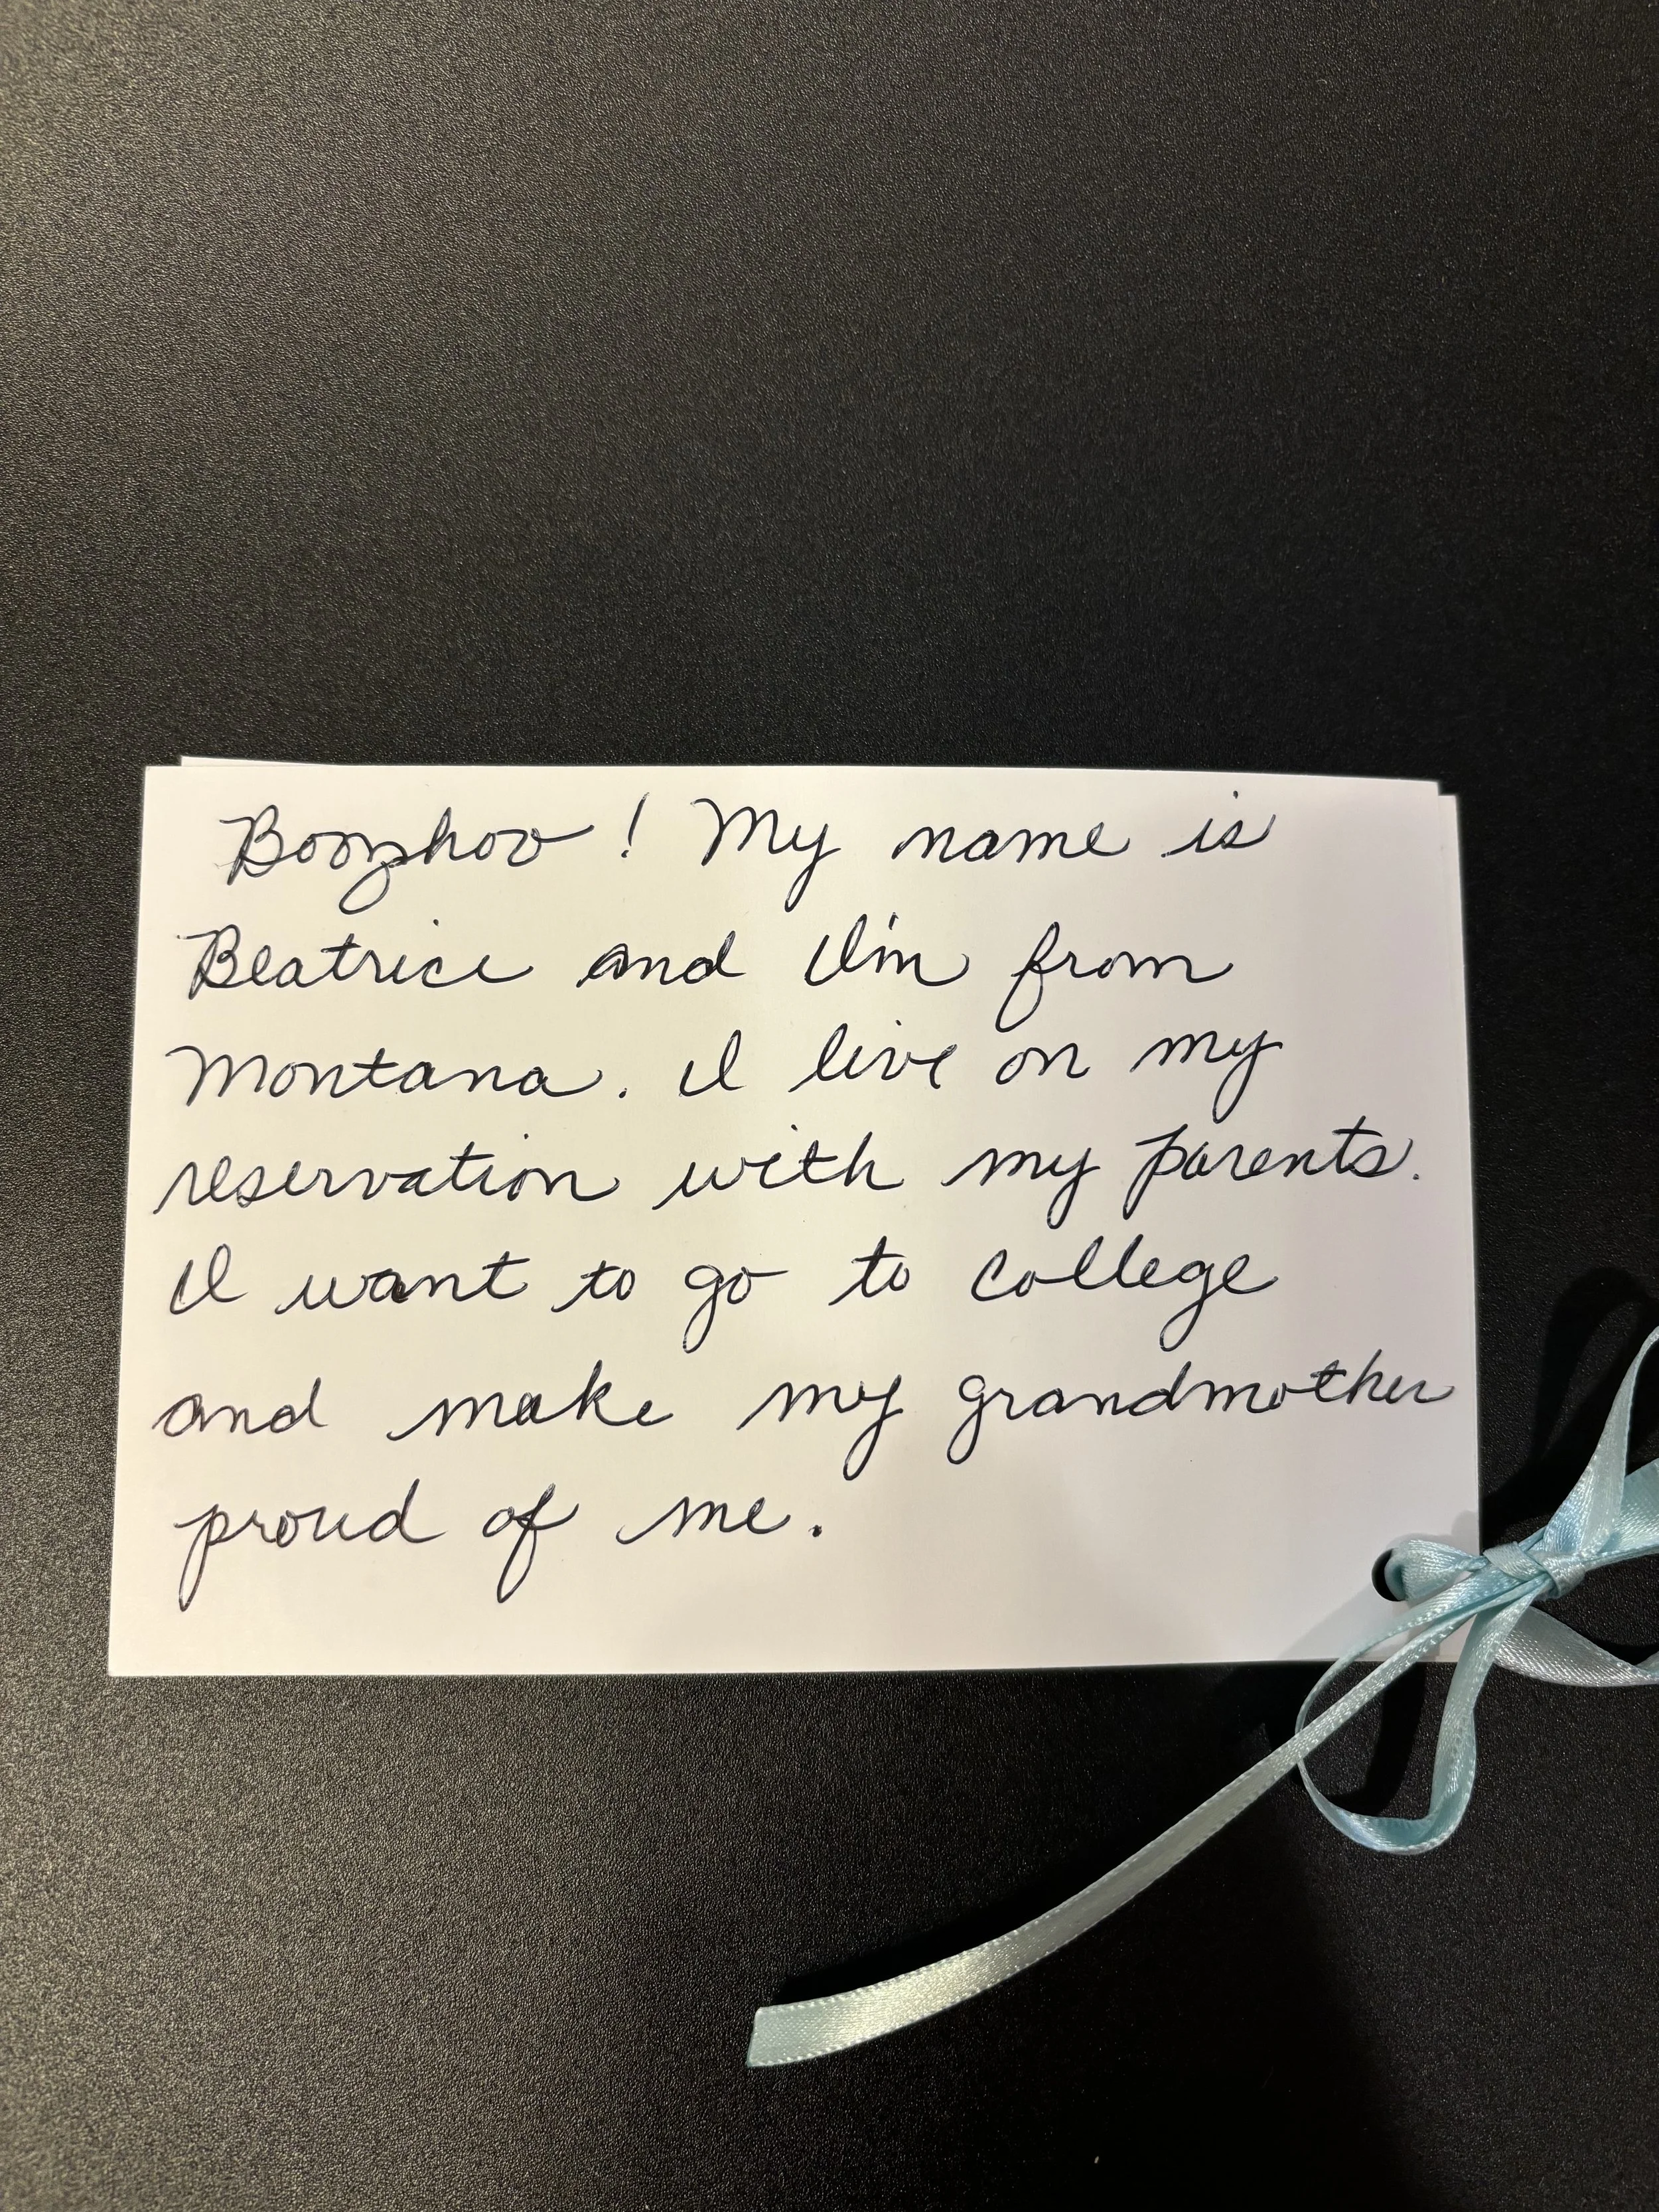 Boozhoo! My name is
Beatrice and I'm from
Montana. I live on my
reservation with my parents.
I want to go to college
and make my grandmother
proud of me.